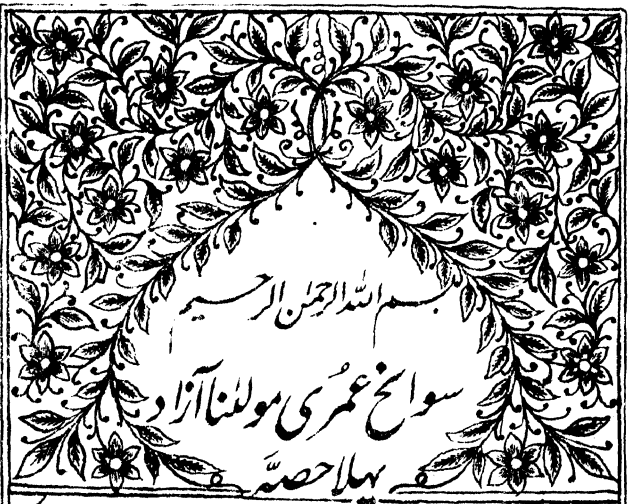 بسم اللہ الرحمٰن الرحیم
سوانح عمُری مولٰنا آزاد
پہلا حصہّ